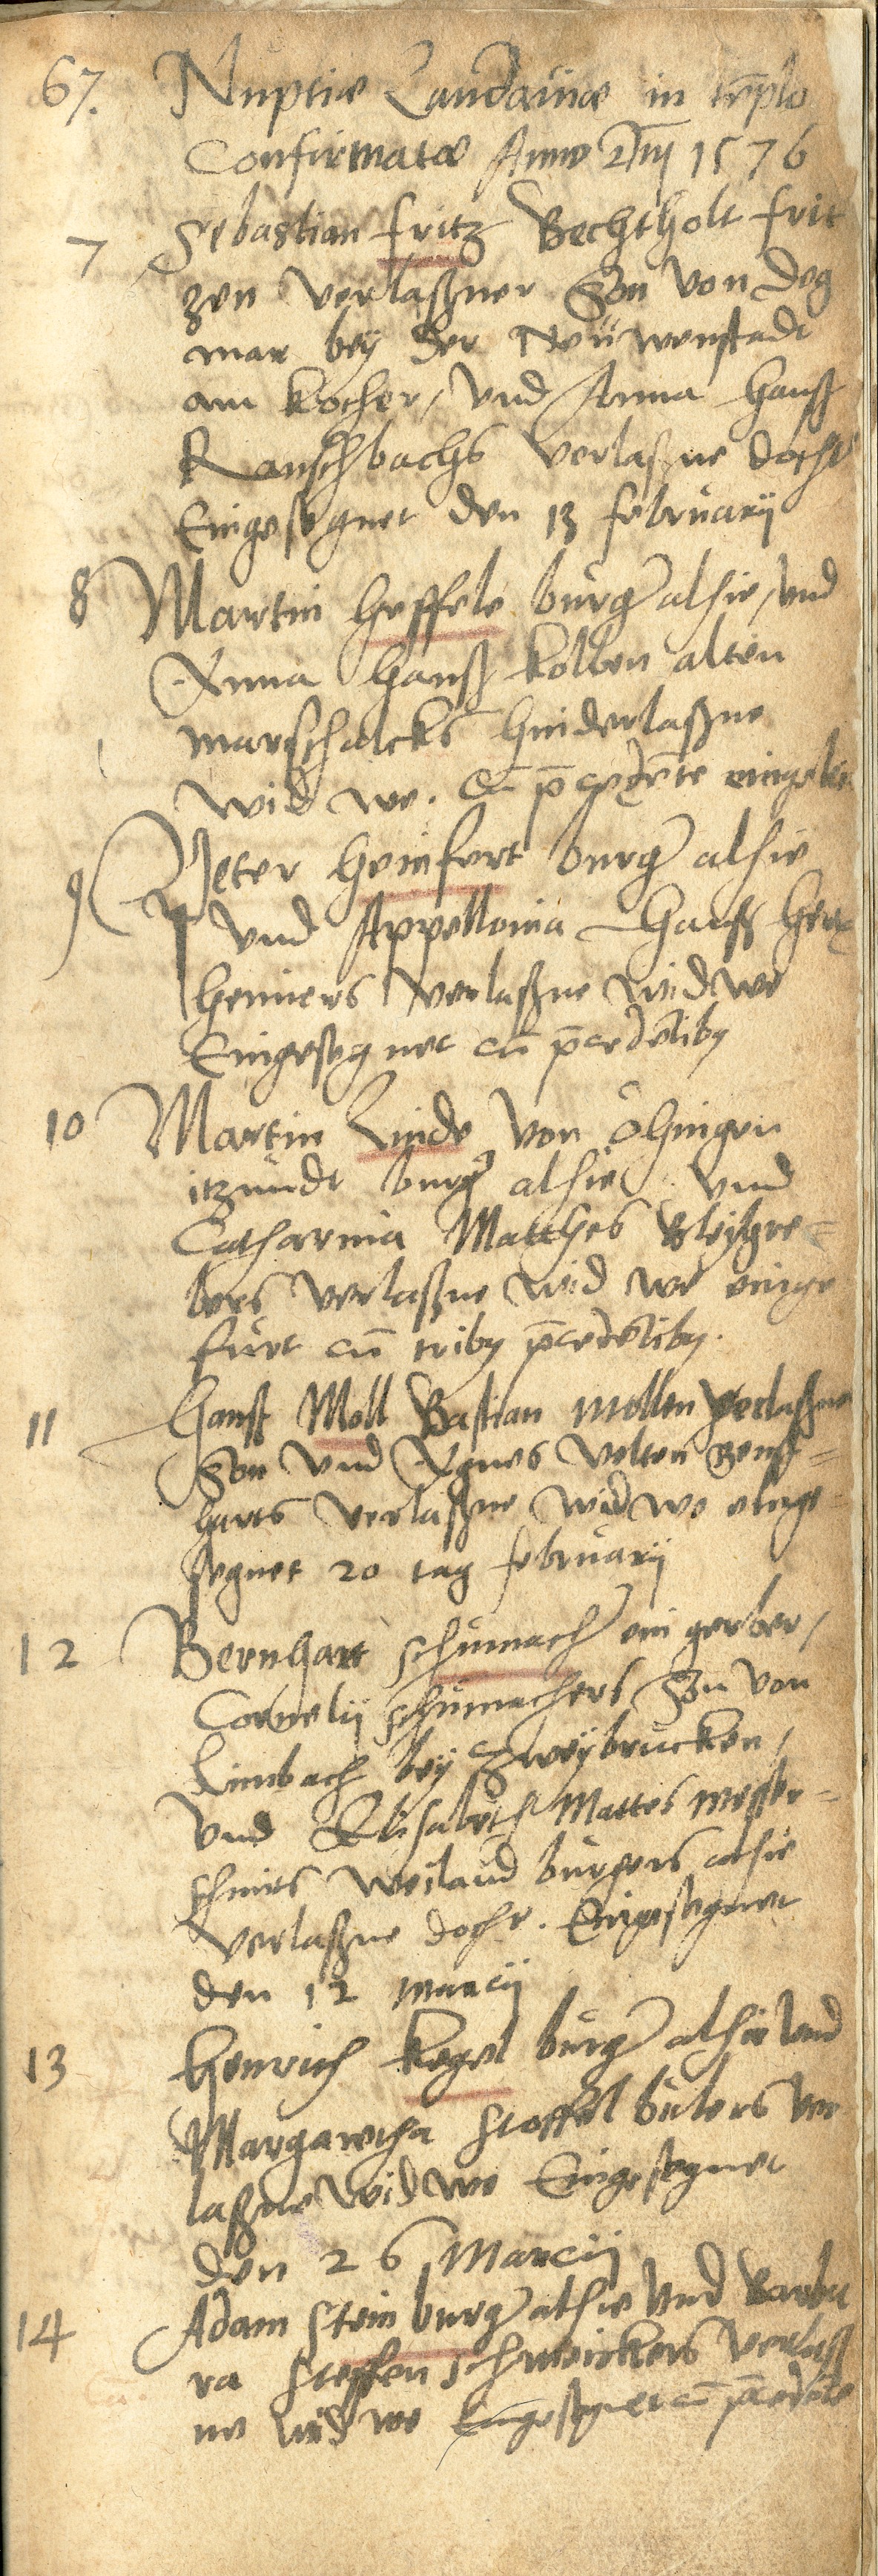 67. Nuptiæ Landavinæ in templo
Confirmatæ Anno Dñj 1576
7 Sebastian Fritz Bechtholt Frit
zen verlaßner Son von Deg
mar bey der Neüwenstadt
am Kocher, und Anna Hanß
Ranschbachs verlaßne docht
Eingesegnet den 13 februarij
8 Martin Heffele bürger alhie, und
Anna Hanß Kolben alten
marschalcks hinderlaßne
wid we. cū p̄cedēte eingelei
9 Peter Heinfort burger alhie
und Appellonia Hanß Herx
heimers verlaßne widwe
Eingesegnet cū p̄cedētibꝫ
10 Martin Linde von Öhingen
itzundt burger alhie und
Catharina Matthes Bleÿgre=
bers verlaßne wid we einge
fürt cū tribꝫ p̄cedētibꝫ.
11 Hanß Moll Bastian Mollen verlaßner
Son und Agnes Velten Genß=
harts verlaßne widwe einge=
segnet 20 tag februarij
12 Bernhart Schumacher ein gerber,
Cornelij Schumachers Son von
Limbach bey Zweybrucken,
und Elisabeth Mattes Messer=
schmits weiland burgers alhie
verlaßne docht. Eingesegnet
den 12 Marcij
13 Henrich Kegel burger alhie und
Margaretha Stoffel bülers ver
laßne widwe Eingesegnet
den 26 Marcij
14 Adam Stein burger alhie und Barba
ra Steffen Schweickers verlaß
ne widwe Eingesegnet cū p̄cedēte